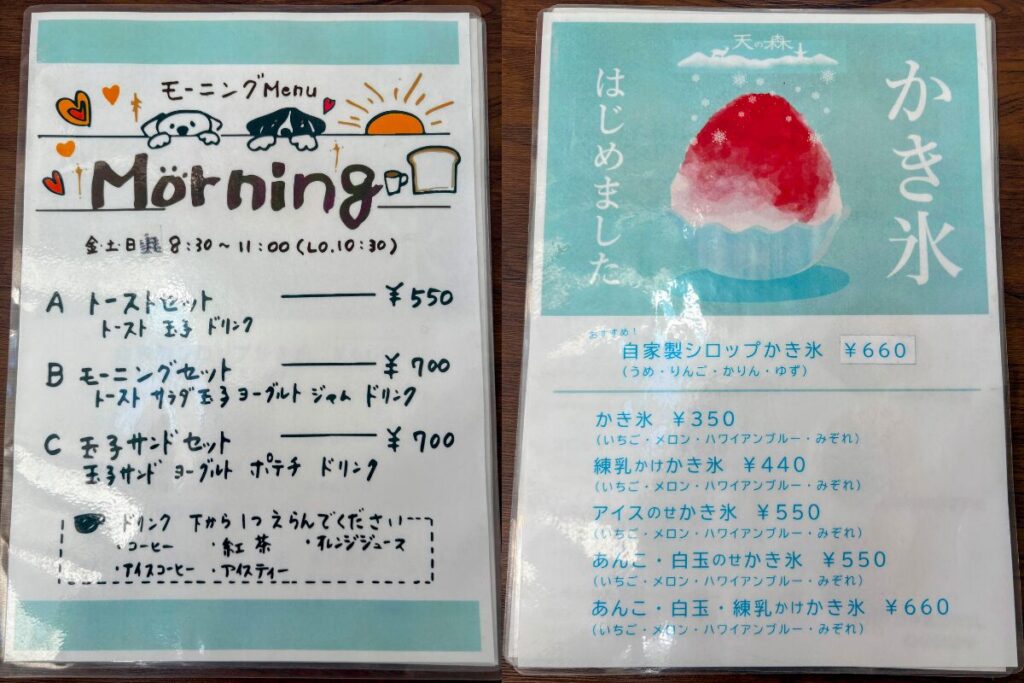 モーニングMenu
Mörning
金・土・日 8:30～11:00(LO.10:30)
A トーストセット ¥550
トースト 玉子 ドリンク
B モーニングセット ¥700
トースト サラダ 玉子 ヨーグルト ジャム ドリンク
C 玉子サンドセット ¥700
玉子サンド ヨーグルト ポテチ ドリンク
ドリンク 下から1つえらんでください
・コーヒー ・紅茶 ・オレンジジュース
・アイスコーヒー ・アイスティー
天の森
かき氷
はじめました
おすすめ！
自家製シロップかき氷 ¥660
（うめ・りんご・かりん・ゆず）
かき氷 ¥350
（いちご・メロン・ハワイアンブルー・みぞれ）
練乳かけかき氷 ¥440
（いちご・メロン・ハワイアンブルー・みぞれ）
アイスのせかき氷 ¥550
（いちご・メロン・ハワイアンブルー・みぞれ）
あんこ・白玉のせかき氷 ¥550
（いちご・メロン・ハワイアンブルー・みぞれ）
あんこ・白玉・練乳かけかき氷 ¥660
（いちご・メロン・ハワイアンブルー・みぞれ）